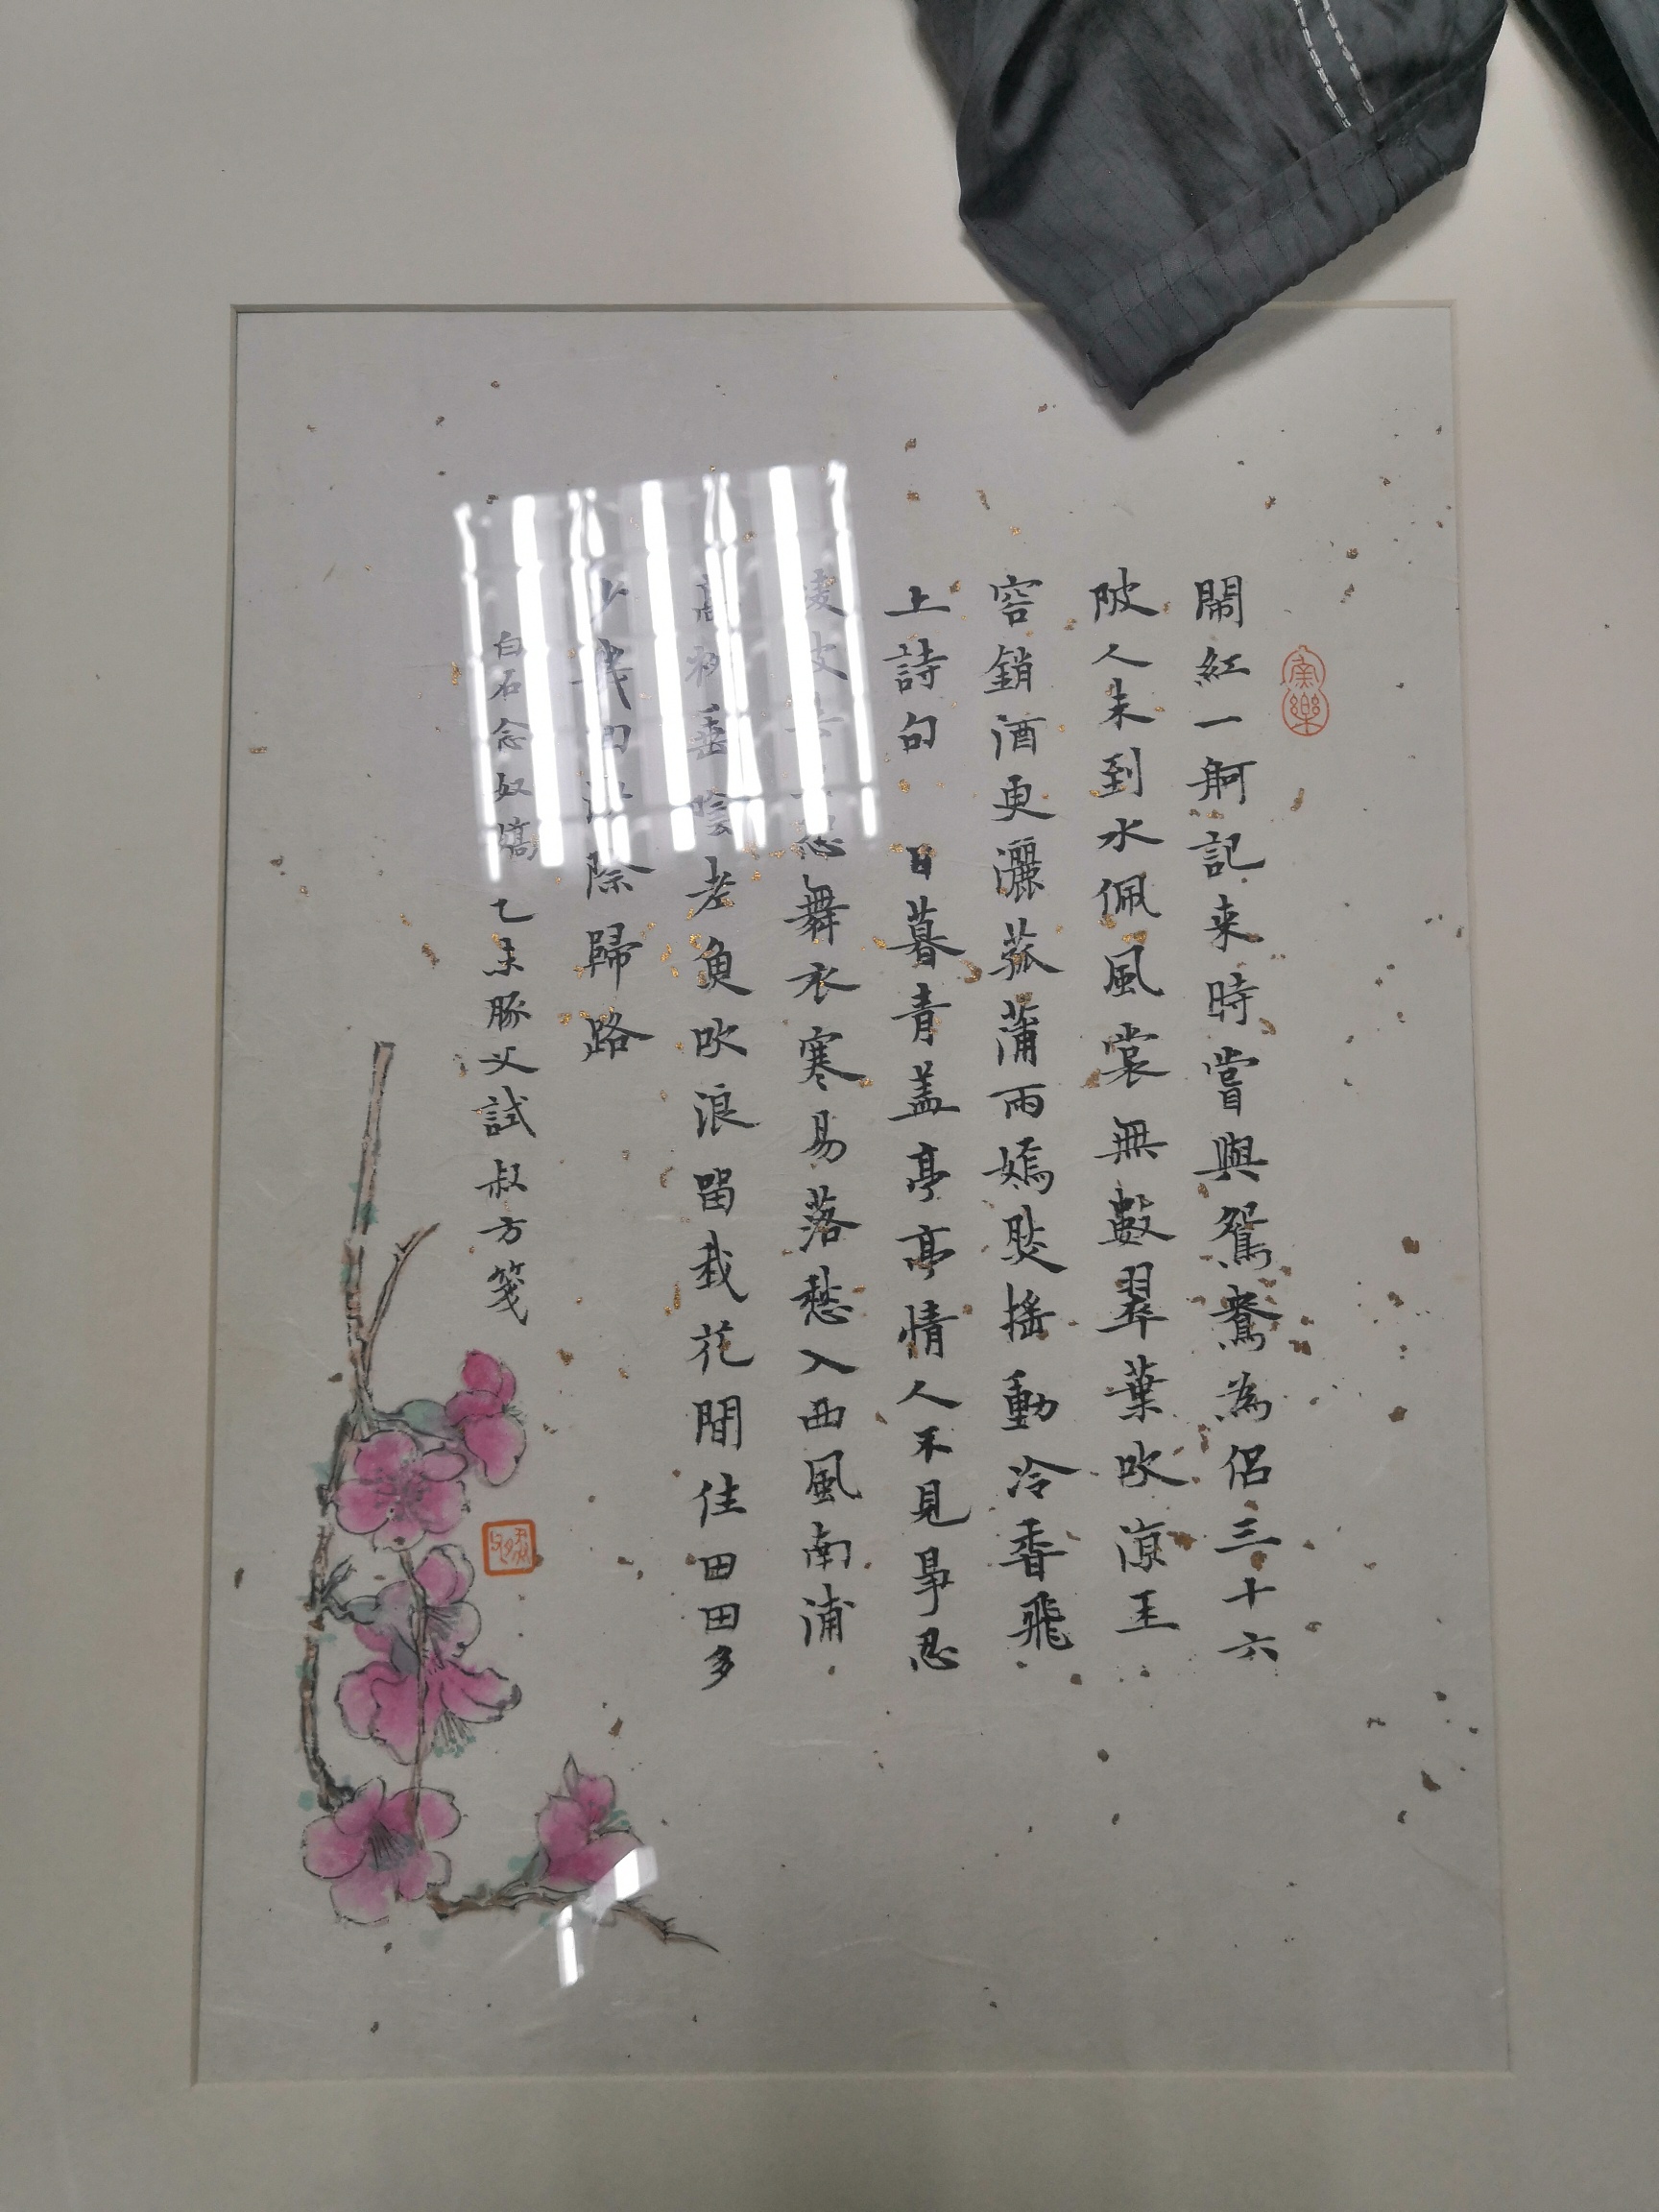 閙紅一舸記来時嘗與鴛鴦為侶三十六
陂人未到水佩風裳無數翠葉吹涼玉
容銷酒更灑菰蒲雨嫣然搖動冷香飛
上詩句 日暮青盖亭亭情人不見爭忍
凌波去 恐舞衣寒易落愁入西風南浦
高柳垂陰老魚吹浪留我花間住田田多
少幾回沙際歸路
白石念奴嬌 乙未豚父試叔方箋